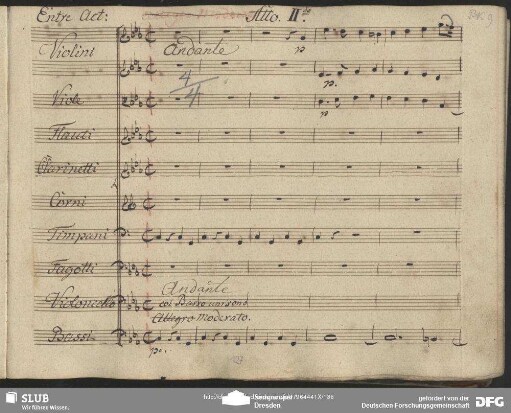 Entre Act: Atto II.do
Violini Andante
p
4/4
p.
Viole
p
Flauti
Clarinetti
Corni
Timpani
Fagotti
Andante
Violoncello col Basso unisono
Allegro moderato.
Bassi
p.
SLUB
Wir führen Wissen.
Dresden
gefördert von der
Deutschen Forschungsgemeinschaft
DFG